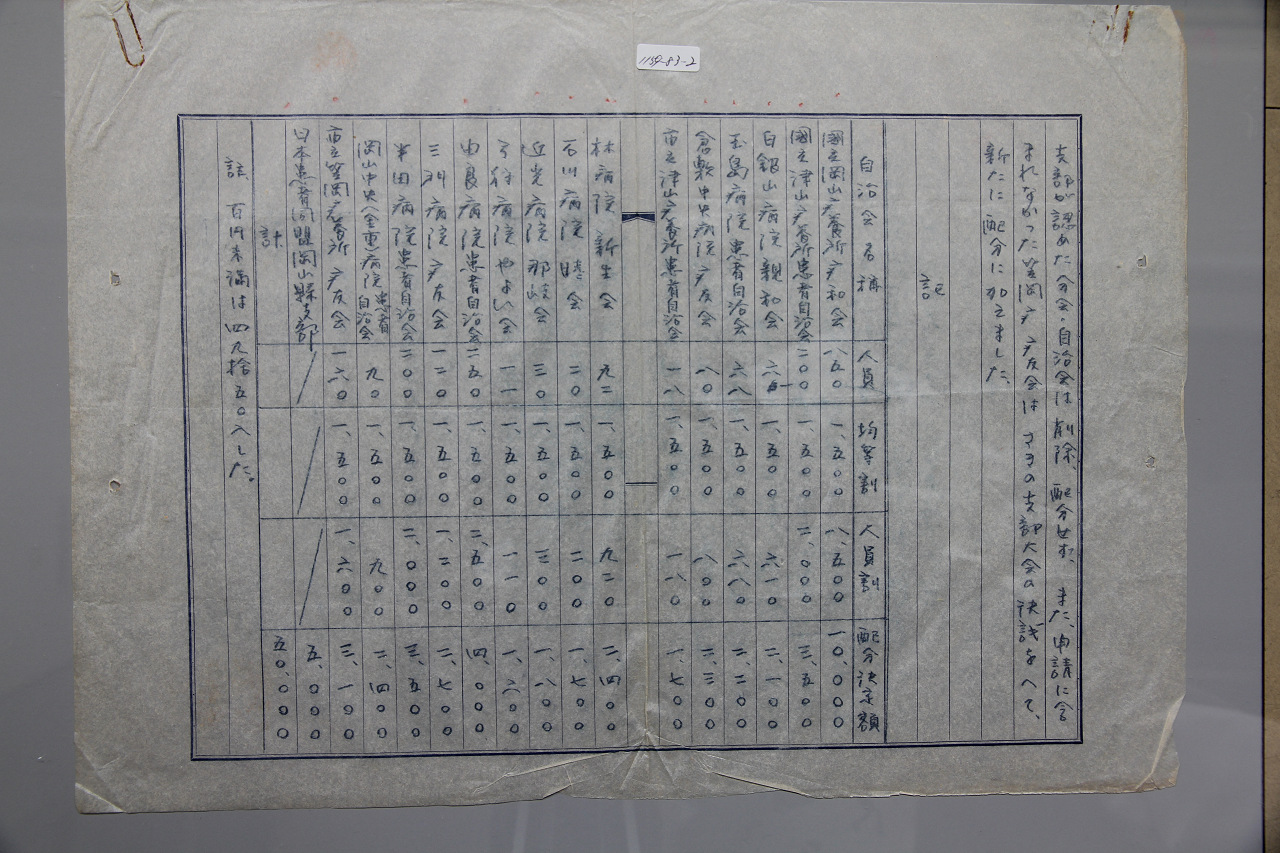 支部が認めた分会・自治会は削除、配分せず、また、申請に含
まれなかった笠岡療療友会はさきの支部大会の決議をへて、
新たに配分に加えました。
記
自治会名稱 人員 均等割 人員割 配分決定額
國立岡山療養所療和会 八五〇 一、五〇〇 八、五〇〇 一〇、〇〇〇
國立津山療養所患者自治会 二〇〇 一、五〇〇 二、〇〇〇 三、五〇〇
白銀山病院親和会 六一 一、五〇〇 六一〇 二、一〇〇
玉島病院患者自治会 六八 一、五〇〇 六八〇 二、二〇〇
倉敷中央病院療友会 八〇 一、五〇〇 八〇〇 二、三〇〇
市立津山療養所患者自治会 一八 一、五〇〇 一八〇 一、七〇〇
林病院新生会 九二 一、五〇〇 九二〇 二、四〇〇
石川病院睦会 二〇 一、五〇〇 二〇〇 一、七〇〇
近光病院那岐会 三〇 一、五〇〇 三〇〇 一、八〇〇
病院やよい会 一一 一、五〇〇 一一〇 一、六〇〇
由良病院患者自治会 二五〇 一、五〇〇 二、五〇〇 四、〇〇〇
病院療友会 一二〇 一、五〇〇 一、二〇〇 二、七〇〇
半田病院患者自治会 二〇〇 一、五〇〇 二、〇〇〇 三、五〇〇
岡山中央(金重)病院患者自治会 九〇 一、五〇〇 九〇〇 二、四〇〇
市立笠岡療養所療友会 一六〇 一、五〇〇 一、六〇〇 三、一〇〇
日本患者同盟岡山縣支部 五、〇〇〇
計 五〇、〇〇〇
註 百円未満は四九捨五〇入した。
1159-83-2